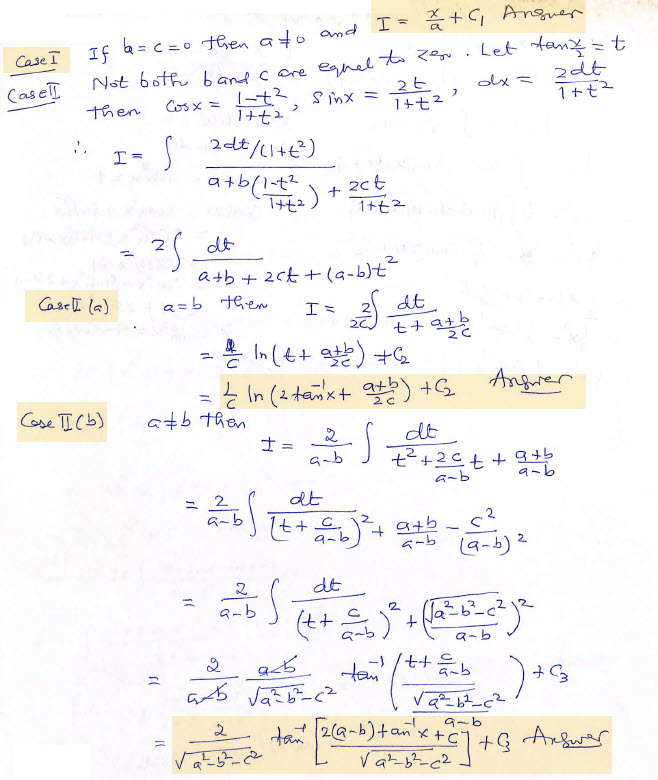 I = x/a + C₁ Answer
Case I If b = c = 0 then a ≠ 0 and
Case II Not both b and c are equal to zero. Let tan x/2 = t
then cos x = (1-t²)/(1+t²), sin x = 2t/(1+t²), dx = 2dt/(1+t²)
∴ I = ∫ (2dt/(1+t²)) / (a+b((1-t²)/(1+t²)) + 2ct/(1+t²))
= 2∫ dt/(a+b + 2ct + (a-b)t²)
Case II (a) a = b then I = 2/2c ∫ dt/(t + (a+b)/2c)
= 1/c ln(t + (a+b)/2c) + C₂
= 1/c ln(2 tan⁻¹x + (a+b)/2c) + C₂ Answer
Case II (b) a ≠ b then
I = 2/(a-b) ∫ dt/(t² + 2c/(a-b) t + (a+b)/(a-b))
= 2/(a-b) ∫ dt/((t + c/(a-b))² + (a+b)/(a-b) - c²/(a-b)²)
= 2/(a-b) ∫ dt/((t + c/(a-b))² + (√(a²-b²-c²)/(a-b))²)
= 2/(a-b) (a-b)/√(a²-b²-c²) tan⁻¹((t + c/(a-b))/(√(a²-b²-c²)/(a-b))) + C₃
= 2/√(a²-b²-c²) tan⁻¹[(2(a-b)tan⁻¹x + c)/√(a²-b²-c²)] + C₃ Answer